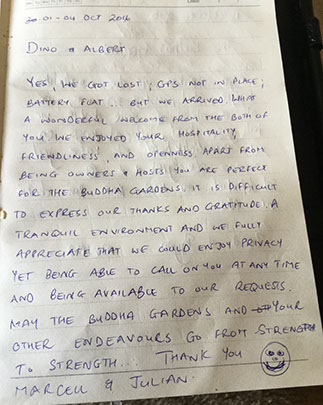 30 01-04 OCT 2014
DINO & ALBERT
YES, WE GOT LOST, GPS NOT IN PLACE,
BATTERY FLAT.. BUT WE ARRIVED. WHAT
A WONDERFUL WELCOME FROM THE BOTH OF
YOU. WE ENJOYED YOUR HOSPITALITY,
FRIENDLINESS, AND OPENNESS. APART FROM
BEING OWNERS & HOSTS YOU ARE PERFECT
FOR THE BUDDHA GARDENS. IT IS DIFFICULT
TO EXPRESS OUR THANKS AND GRATITUDE. A
TRANQUIL ENVIRONMENT AND WE FULLY
APPRECIATE THAT WE COULD ENJOY PRIVACY
YET BEING ABLE TO CALL ON YOU AT ANY TIME
AND BEING AVAILABLE TO OUR REQUESTS.
MAY THE BUDDHA GARDENS AND YOUR
OTHER ENDEAVOURS GO FROM STRENGTH
TO STRENGTH... THANK YOU
MARCELL & JULIAN.